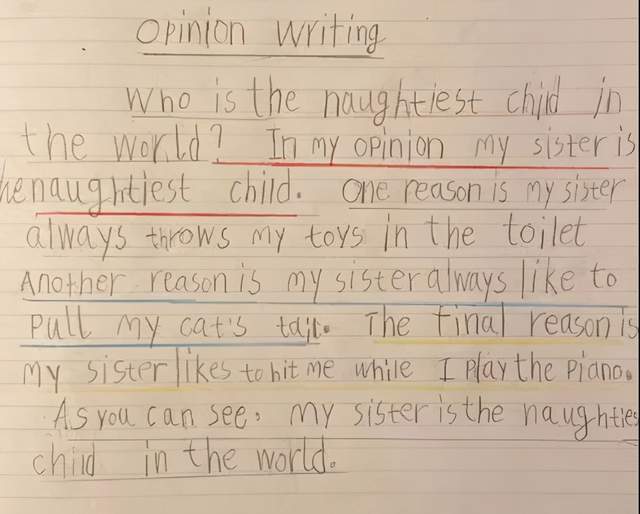 Opinion Writing
Who is the naughtiest child in
the world? In my opinion my sister is
he naughtiest child. One reason is my sister
always throws my toys in the toilet
Another reason is my sister always like to
pull my cat's tail. The final reason is
my sister likes to hit me while I play the piano.
As you can see, my sister is the naughties
child in the world.